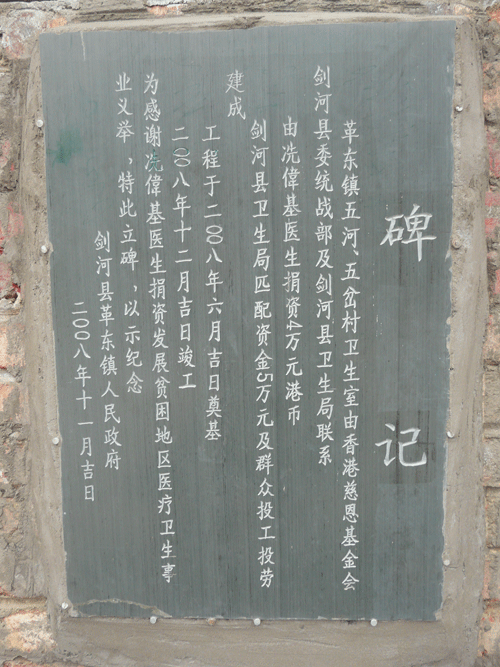 碑记
革东镇五河、五岔村卫生室由香港慈恩基金会
剑河县委统战部及剑河县卫生局联系
由冼偉基医生捐资4万元港币
剑河县卫生局匹配资金5万元及群众投工投劳
建成
工程于二00八年六月吉日奠基
二00八年十二月吉日竣工
为感谢冼偉基医生捐资发展贫困地区医疗卫生事
业义举，特此立碑，以示纪念
剑河县革东镇人民政府
二00八年十一月吉日